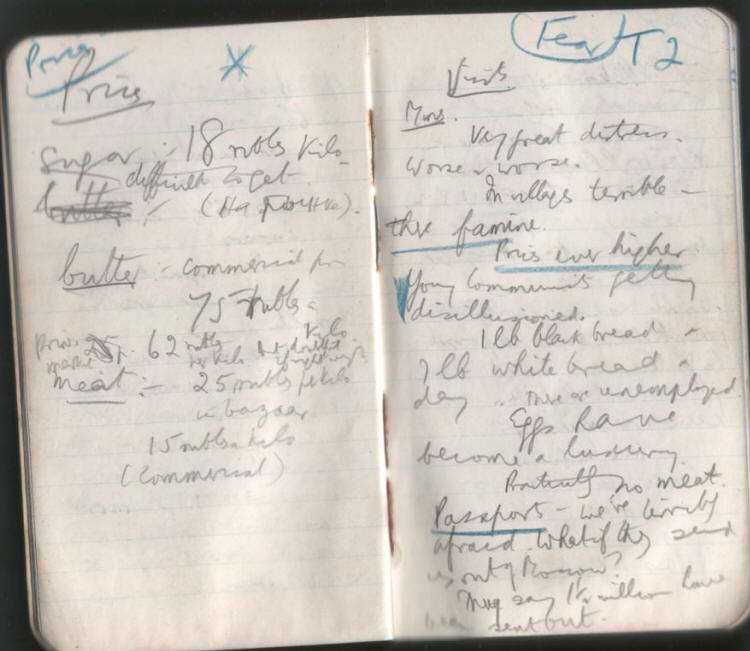 Prices
Prices
sugar :- 18 roubles kilo
difficult to get
butter :- (На рынке).
butter :- commercial
75 roubles a
kilo
Private 62 roubles
per kilo
meat :- 25 roubles kilo
in bazaar
15 roubles a kilo
(Commercial)
Fear T2
Visit.
Mrs.
Very great distress.
Worse & worse.
In villages terrible -
famine.
Prices ever higher
Young Communists getting
disillusioned.
1 lb black bread -
1 lb white bread a
day. unemployed.
Eggs have
become a luxury
Practically no meat.
Passports - we're terribly
afraid. What if they send
us out of Moscow?
They say 1½ million have
been sent out.